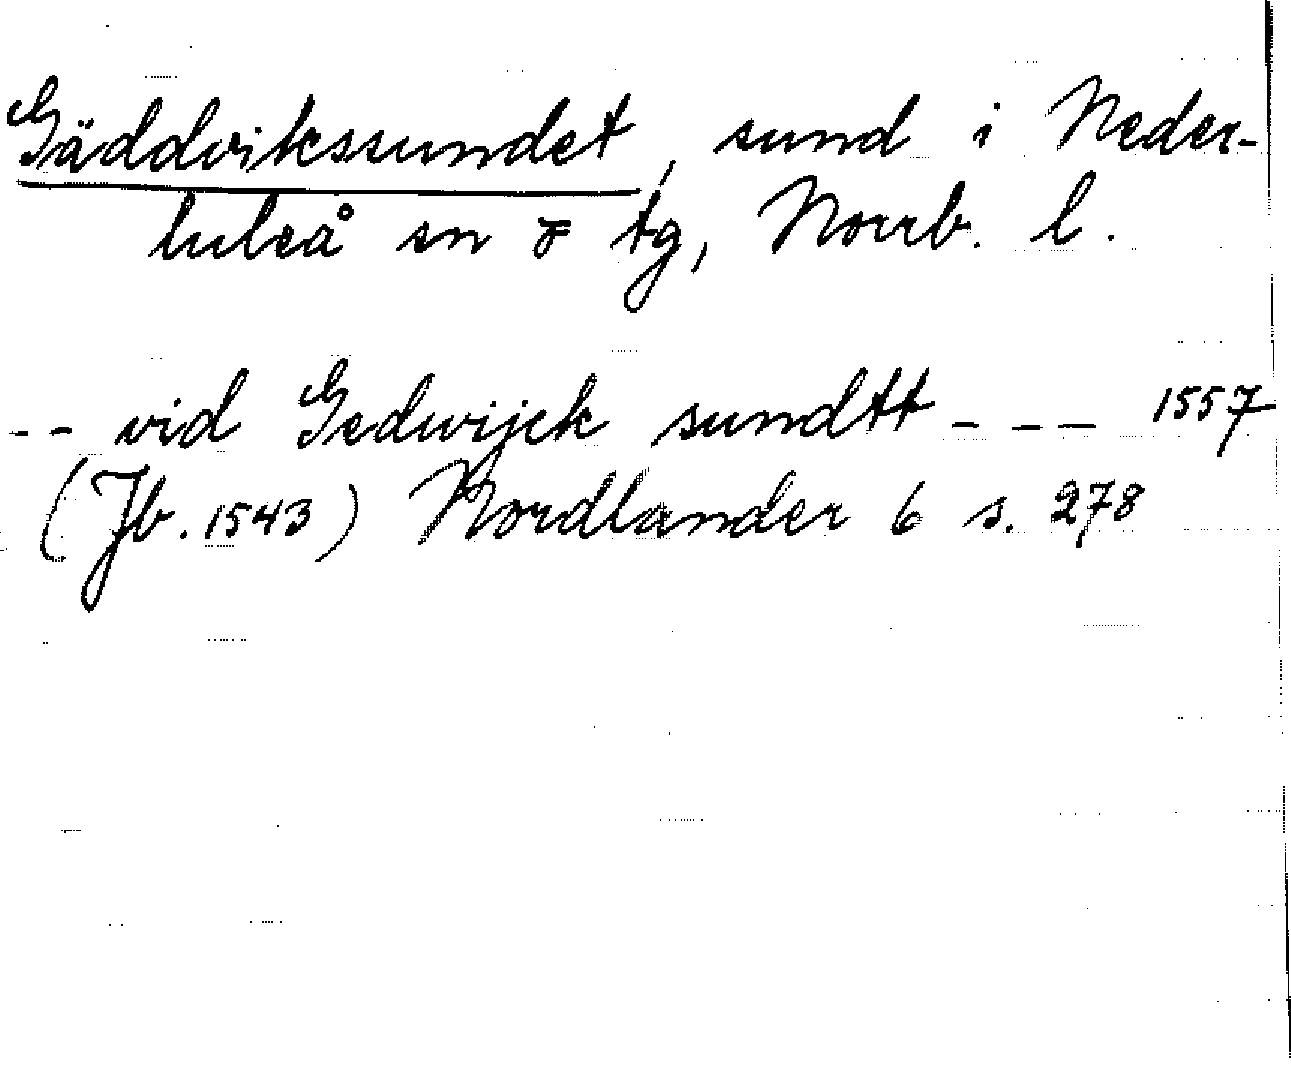 Gäddvikssundet, sund i Neder-
luleå sn o tg, Norrb. l.
-- vid Gedwijck sundtt --- 1557
(Jb. 1543) Nordlander 6 s. 278